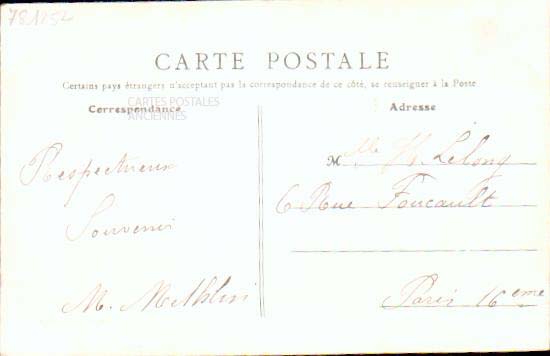 781252
CARTE POSTALE
Certains pays étrangers n'acceptent pas la correspondance de ce côté, se renseigner à la Poste
Correspondance
CARTES POSTALES
ANCIENNES
Respectueux
Souvenir
M.
Adresse
Mlle K. Lelong
6 Rue Foucault
Paris 16eme